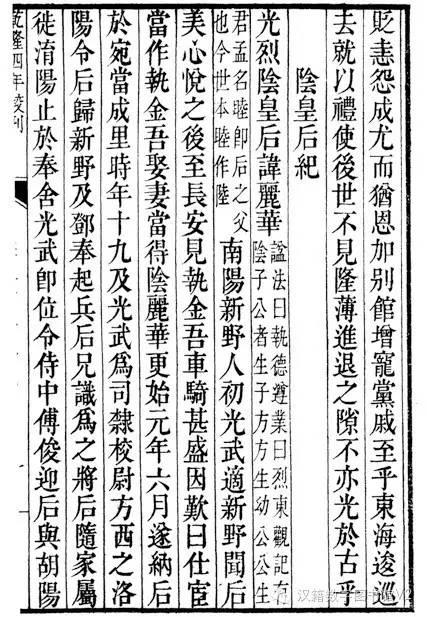 貶恚怨成尤而猶恩加别館增寵黨戚至乎東海逡巡
去就以禮使後世不見隆薄進退之隙不亦光於古乎
陰皇后紀
光烈陰皇后諱麗華
諡法曰執德遵業曰烈東觀記有
陰子公者生子方方生幼公公生
君孟名睦即后之父
也今世本睦作陸
南陽新野人初光武適新野聞后
美心悅之後至長安見執金吾車騎甚盛因歎曰仕宦
當作執金吾娶妻當得陰麗華更始元年六月遂納后
於宛當成里時年十九及光武爲司隸校尉方西之洛
陽令后歸新野及鄧奉起兵后兄識爲之將后隨家屬
徙淯陽止於奉舍光武卽位令侍中傅俊迎后與胡陽
乾隆四年校刊